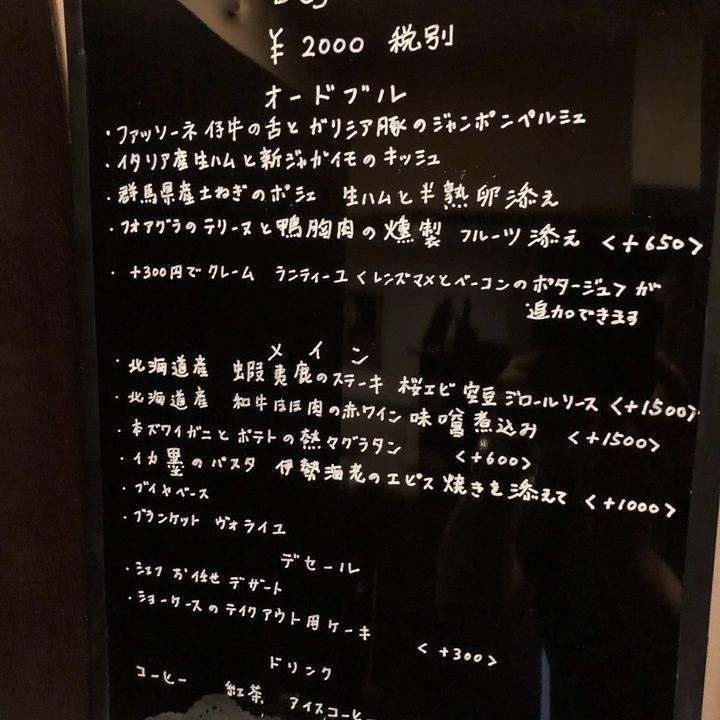 ¥2000 税別
オードブル
・ファッソーネ仔牛の舌とガリシア豚のジャンボンペルシエ
・イタリア産生ハムと新ジャガイモのキッシュ
・群馬県産土ねぎのポシェ 生ハムと半熟卵添え
・フォアグラのテリーヌと鴨胸肉の燻製 フルーツ添え <+650>
・+300円でクレーム ランティーユ<レンズマメとベーコンのポタージュ>が
追加できます
メイン
・北海道産 蝦夷鹿のステーキ 桜エビ 空豆 ジロールソース <+1500>
・北海道産 和牛ほほ肉の赤ワイン味噌煮込み <+1500>
・本ズワイガニとポテトの熱々グラタン <+600>
・イカ墨のパスタ 伊勢海老のエピス焼きを添えて <+1000>
・ブイヤベース
・ブランケット ヴォライユ
デセール
・シェフお任せデザート
・ショーケースのテイクアウト用ケーキ <+300>
ドリンク
コーヒー 紅茶 アイスコーヒー